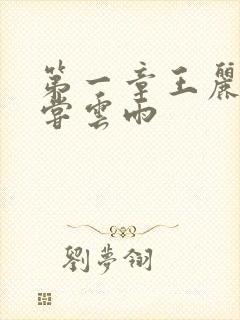 第一章王麗
嘗雲雨
劉夢翎